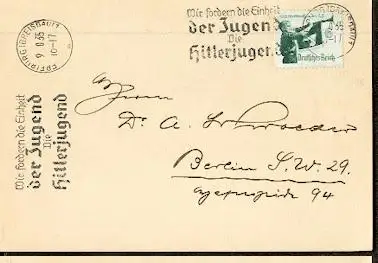 FREIBURG (BREISGAU) 1
9. 35
10-17
Wir fordern die Einheit
der Jugend
Die
Hitlerjugend
Deutsches Reich
(BREISGAU) 1
35
-17
Wir fordern die Einheit
der Jugend
Die
Hitlerjugend
Herrn
Dr. A.
Berlin S.W. 29.
94